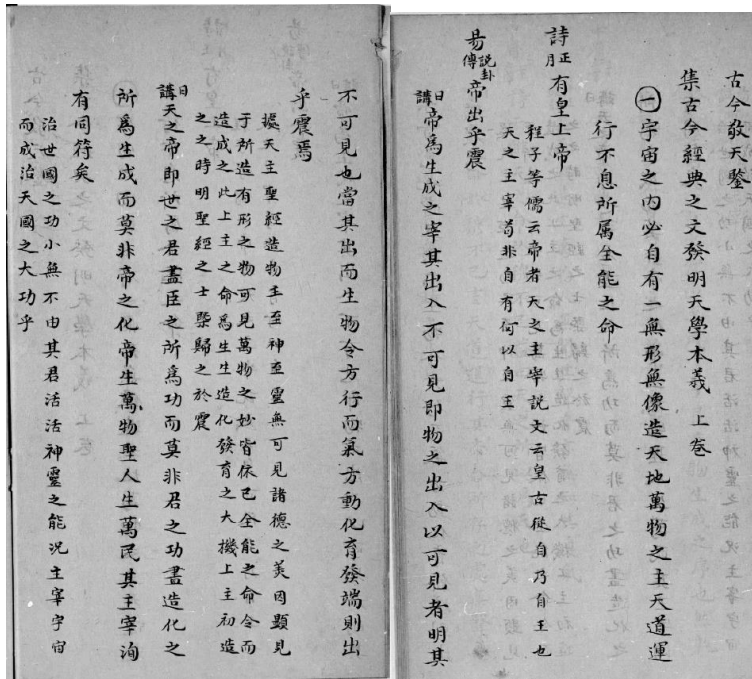 古今敬天鑒
集古今經典之文發明天學本義 上卷
一宇宙之内必自有一無形無像造天地萬物之主天道運
行不息所属全能之命
詩 正月 有皇上帝
程子等儒云帝者天之主宰説文云皇古從自乃自王也
天之主宰苟非自有何以自王
易 説卦傳 帝出乎震
日講 帝爲生成之宰其出入不可見即物之出入以可見者明其
不可見也當其出而生物令方行而氣方動化育發端則出
乎震焉
據天主聖經造物主至神至靈無可見諸德之美因顕見
于所造有形之物可見萬物之妙皆依已全能之命令而
造成之此上主之命爲生生造化發育之大機上主初造
之之時明聖經之士槩歸之於震
日講 天之帝即世之君盡臣之所爲功而莫非君之功盡造化之
所爲生成而莫非帝之化帝生萬物聖人生萬民其主宰洵
有同符矣
治世國之功小無不由其君活活神靈之能況主宰宇宙
而成治天國之大功乎